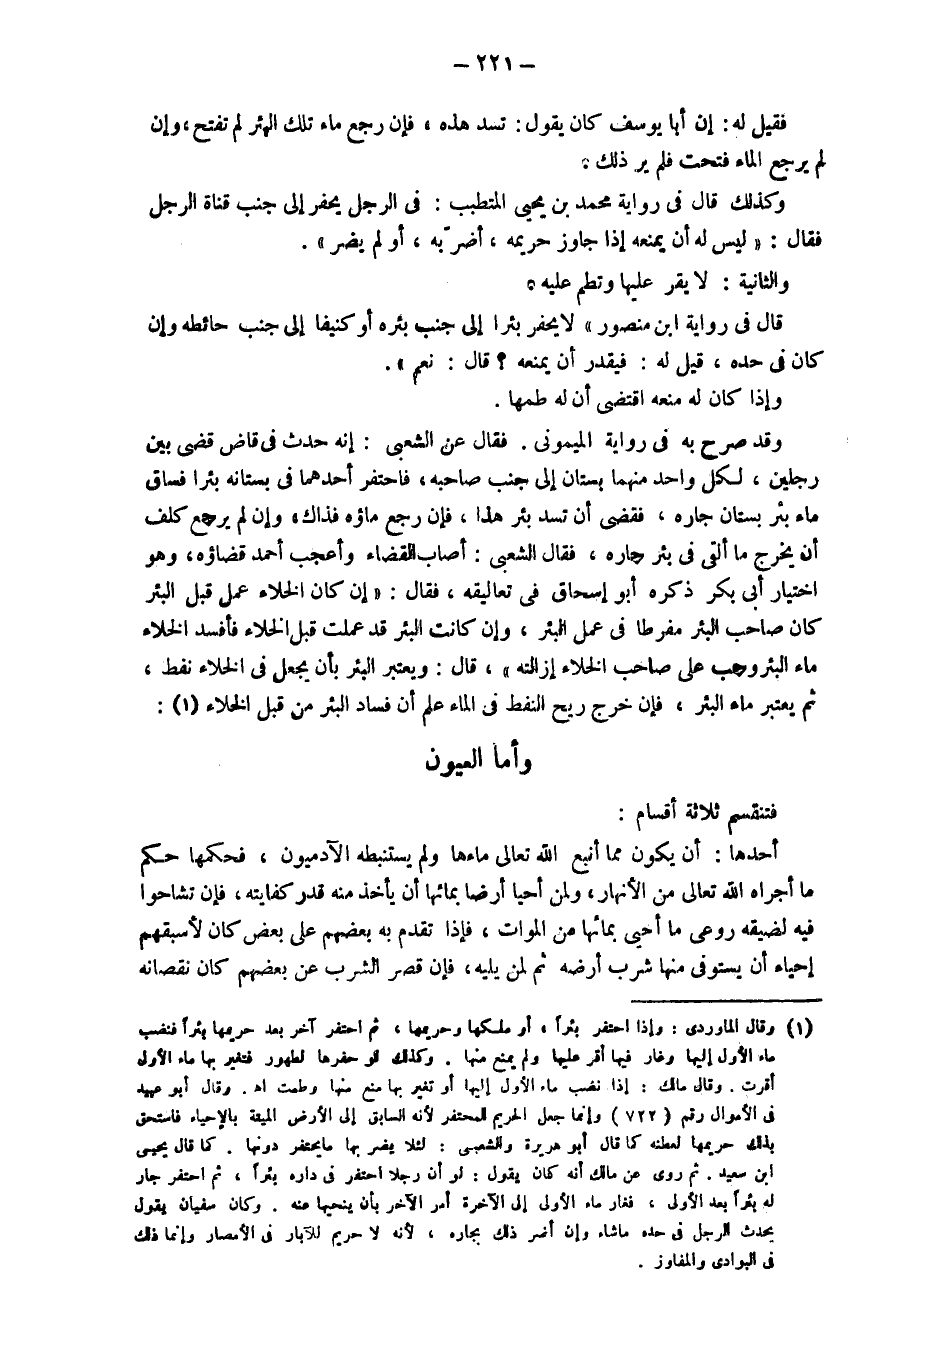 – ٢٢١ –
فقيل له : إن أبا يوسف كان يقول : تسد هذه ، فإن رجع ماء تلك البئر لم تفتح ، وإن
لم يرجع الماء فتحت فلم ير ذلك :
وكذلك قال فى رواية محمد بن يحيى المتطبب : فى الرجل يحفر إلى جنب قناة الرجل
فقال : « ليس له أن يمنعه إذا جاوز حريمه ، أضر به ، أو لم يضر » .
والثانية : لا يقر عليها وتطم عليه .
قال فى رواية ابن منصور » لا يحفر بئرا إلى جنب بئره أو كنيفا إلى جنب حائطه وإن
كان فى حده ، قيل له : فيقدر أن يمنعه ؟ قال : نعم » .
وإذا كان له منعه اقتضى أن له طمها .
وقد صرح به فى رواية الميمونى . فقال عن الشعبى : إنه حدث فى قاض قضى بين
رجلين ، لكل واحد منهما بستان إلى جنب صاحبه ، فاحتفر أحدهما فى بستانه بئرا فساق
ماء بئر بستان جاره ، فقضى أن تسد بئر هذا ، فإن رجع ماؤه فذاك ، وإن لم يرجع كلف
أن يخرج ما ألقى فى بئر جاره ، فقال الشعبى : أصاب القضاء وأعجب أحمد قضاؤه ، وهو
اختيار أبى بكر ذكره أبو إسحاق فى تعاليقه ، فقال : « إن كان الخلاء عمل قبل البئر
كان صاحب البئر مفرطا فى عمل البئر ، وإن كانت البئر قد عملت قبل الخلاء فأفسد الخلاء
ماء البئر وجب على صاحب الخلاء إزالته » ، قال : ويعتبر البئر بأن يجعل فى الخلاء نفط ،
ثم يعتبر ماء البئر ، فإن خرج ريح النفط فى الماء علم أن فساد البئر من قبل الخلاء (١) :
وأما العيون
فتنقسم ثلاثة أقسام :
أحدها : أن يكون مما أنبع الله تعالى ماءها ولم يستنبطه الآدميون ، فحكمها حكم
ما أجراه الله تعالى من الأنهار ، ولمن أحيا أرضا بمائها أن يأخذ منه قدر كفايته ، فإن تشاحوا
فيه لضيقه روعى ما أحيى بمائها من الموات ، فإذا تقدم به بعضهم على بعض كان لأسبقهم
إحياء أن يستوفى منها شرب أرضه ثم لمن يليه ، فإن قصر الشرب عن بعضهم كان نقصانه
(١) وقال الماوردى : وإذا احتفر بئراً ، أو ملكها وحريمها ، ثم احتفر آخر بعد حريمها بئراً فنضب
ماء الأول إليها وغار فيها أقر عليها ولم يمنع منها . وكذلك لو حفرها لطهور فتغير بها ماء الأول
أقرت . وقال مالك : إذا نضب ماء الأول إليها أو تغير بها منع منها وطمت اهـ . وقال أبو عبيد
فى الأموال رقم ( ٧٢٢ ) وإنما جعل الحريم للمحتفر لأنه السابق إلى الأرض الميتة بالإحياء فاستحق
بذلك حريمها لعطنه كما قال أبو هريرة والشعبى : لئلا يضر بها ما يحتفر دونها . كما قال يحيى
ابن سعيد . ثم روى عن مالك أنه كان يقول : لو أن رجلا احتفر فى داره بئراً ، ثم احتفر جار
له بئراً بعد الأولى ، فغار ماء الأولى إلى الآخرة أمر الآخر بأن ينحيها عنه . وكان سفيان يقول
يحدث الرجل فى حده ماشاء وإن أضر ذلك بجاره ، لأنه لا حريم للآبار فى الأمصار وإنما ذلك
فى البوادى والمفاوز .